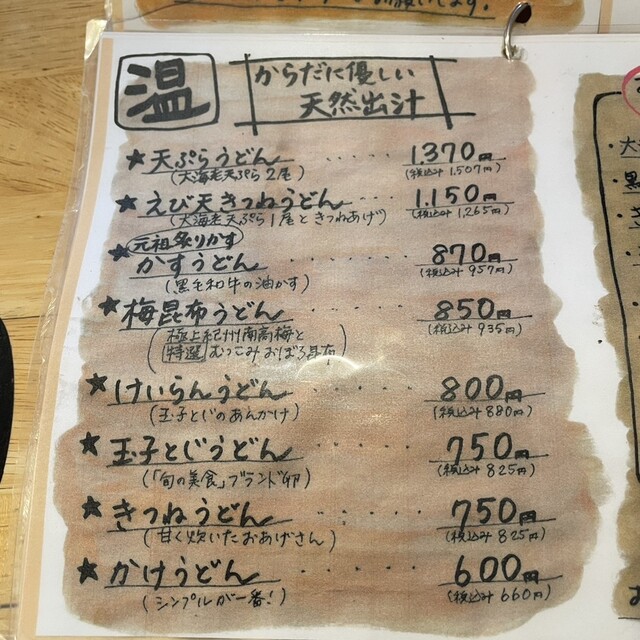 します。
温
からだに優しい
天然出汁
★天ぷらうどん ····· 1.370円
(大海老天ぷら2尾) (税込み1.507円)
★えび天きつねうどん 1.150円
(大海老天ぷら1尾ときつねあげ) (税込み1.265円)
元祖炙りかす
★かすうどん ····· 870円
(黒毛和牛の油かす) (税込み957円)
★梅昆布うどん ····· 850円
(極上紀州南高梅と (税込み935円)
特選むっこみおぼろ昆布)
★けいらんうどん ····· 800円
(玉子とじのあんかけ) (税込み880円)
★玉子とじうどん ····· 750円
(「旬の美食」ブランド卵) (税込み825円)
★きつねうどん ····· 750円
(甘く炊いたおあげさん) (税込み825円)
★かけうどん ····· 600円
(シンプルが一番!) (税込み660円)